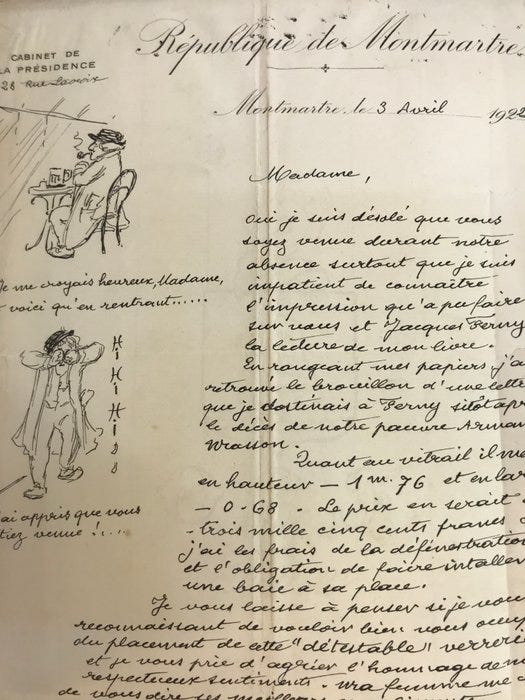 République de Montmartre
CABINET DE
LA PRÉSIDENCE
28 Rue
Montmartre, le 3 Avril 192
Madame,
Oui je suis désolé que vous
soyez venue durant notre
absence surtout que je suis
impatient de connaître
l'impression qu'a pu faire
sur vous et Jacques Ferny
la lecture de mon livre.
En rangeant mes papiers j'ai
retrouvé le brouillon d'une lett
que je destinais à Ferny sitôt apr
le décès de notre pauvre Arman
Masson.
Quant au vitrail il me
en hauteur — 1 m. 76 et en lar
— 0.68. Le prix en serait
trois mille cinq cents francs
j'ai les frais de la défénestration
et l'obligation de faire intaller
une baie à sa place.
Je vous laisse à penser si je vous
reconnaissant de vouloir bien vous occup
du placement de cette "détestable" verrerie
et je vous prie d'agréer l'hommage de m
respectueux sentiments. Ma femme me
de vous dire ses meilleurs
Je me croyais heureux, Madame,
t voici qu'en rentrant......
Hi
Hi
Hi
ai appris que vous
tiez venue !....